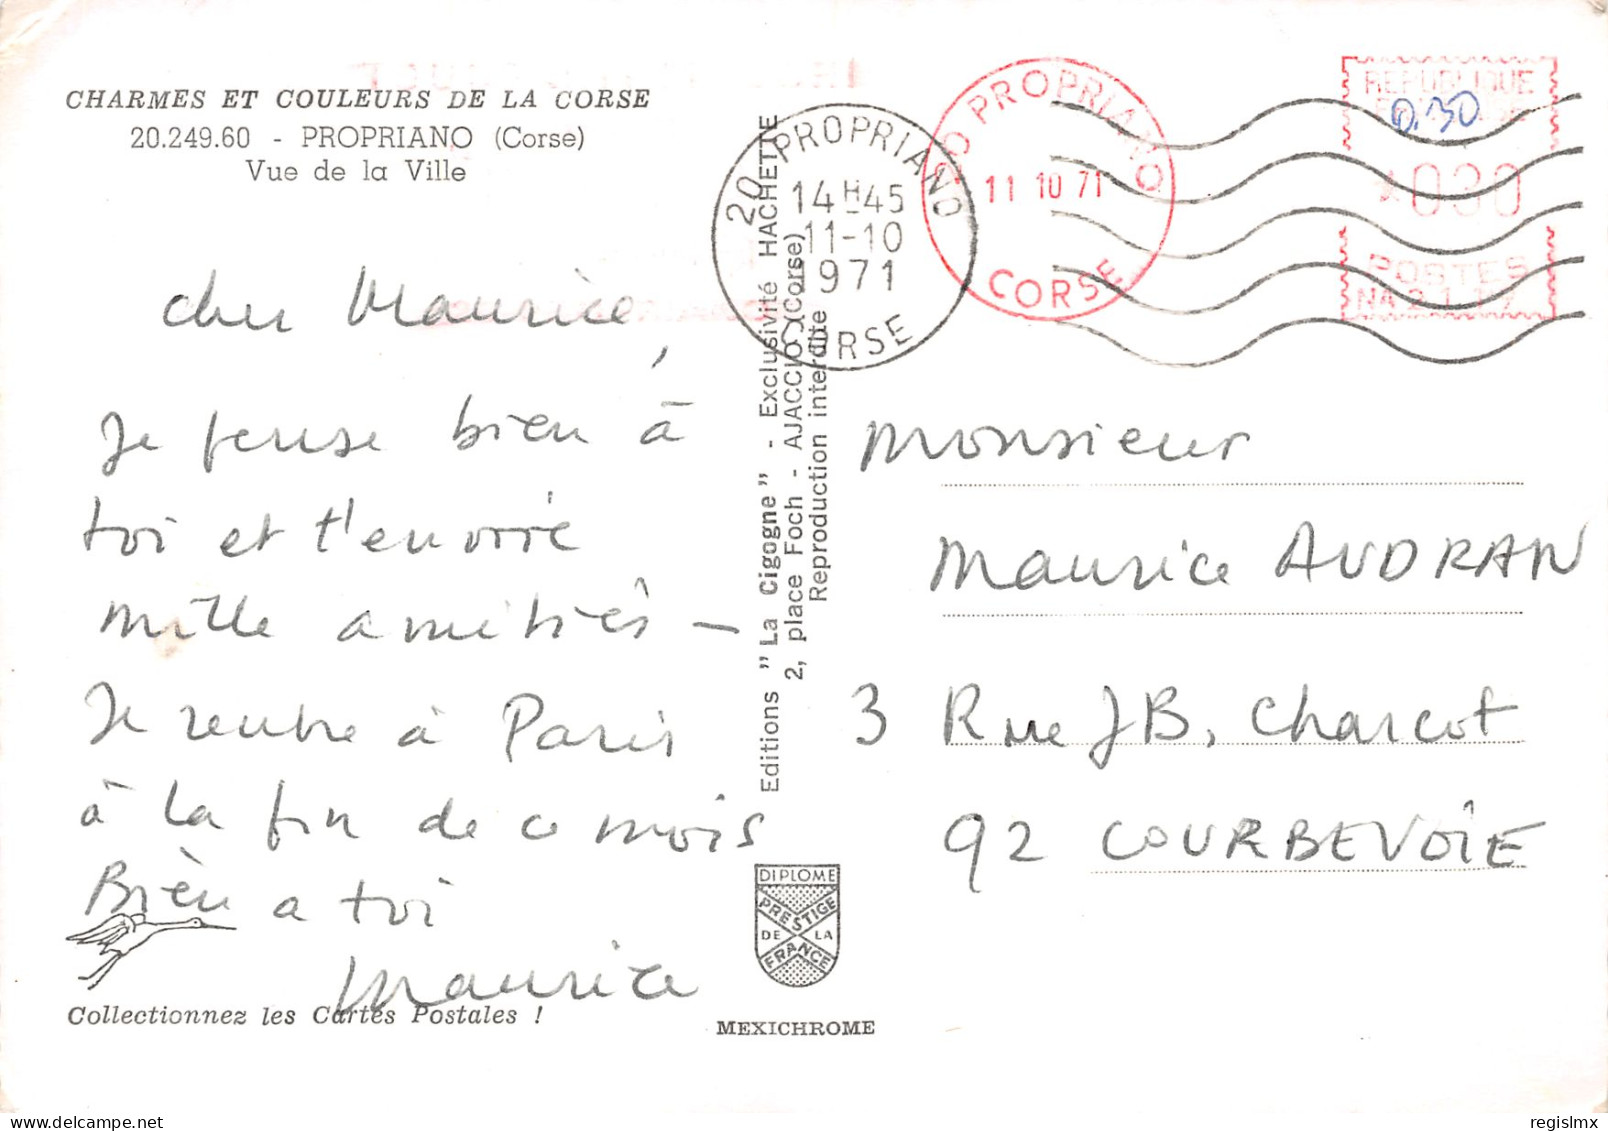 CHARMES ET COULEURS DE LA CORSE
20.249.60 - PROPRIANO (Corse)
Vue de la Ville
cher Maurice,
Je pense bien à
toi et t'envoie
mille amitiés -
Je rentre à Paris
à la fin de ce mois
Bien a toi
Maurice
Collectionnez les Cartes Postales !
Editions "La Cigogne" - Exclusivité HACHETTE
2, place Foch - AJACCIO (Corse)
Reproduction interdite
DIPLOME
PRESTIGE
DE LA
FRANCE
MEXICHROME
20 PROPRIANO
14H45
11-10
1971
CORSE
20 PROPRIANO
11 10 71
CORSE
REPUBLIQUE
0.30
030
POSTES
Monsieur
Maurice AUDRAN
3 Rue JB. Charcot
92 COURBEVOIE
regislmx